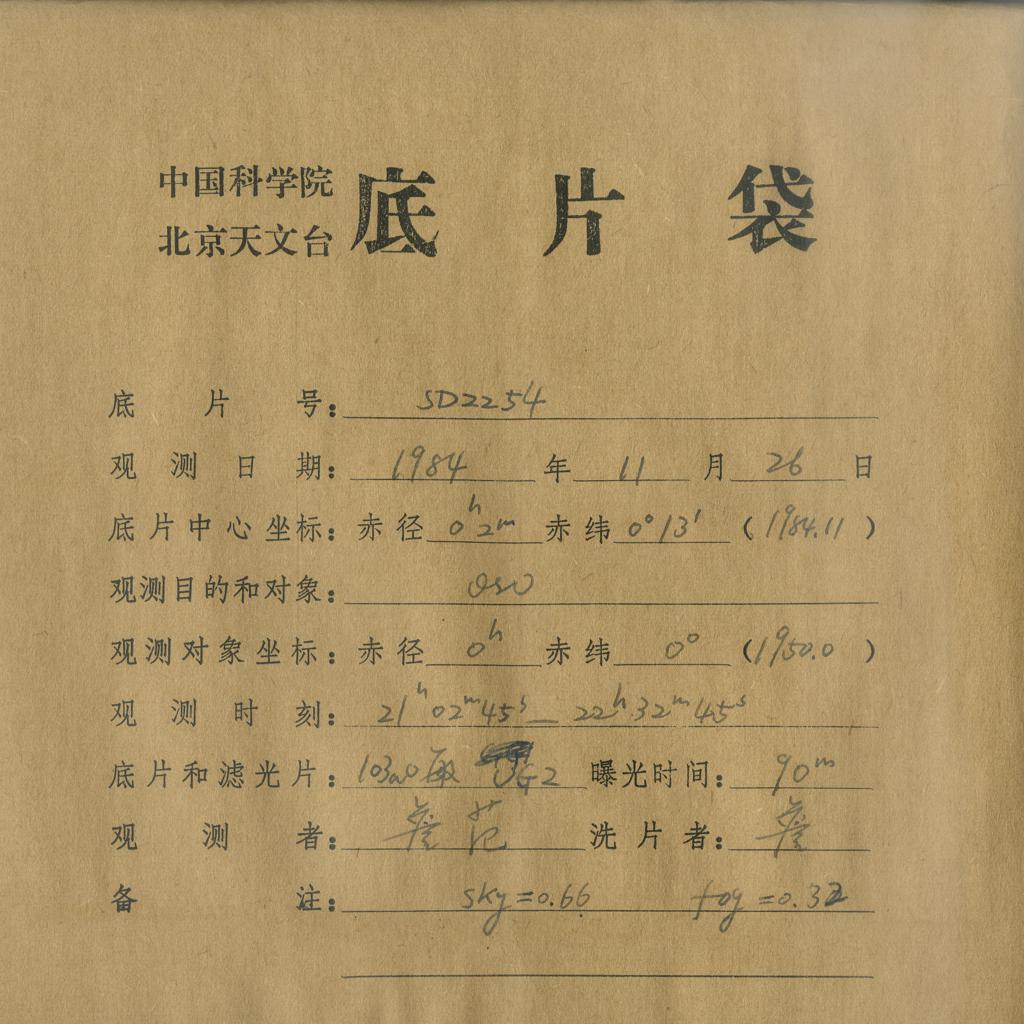 中国科学院
北京天文台
底片袋
底片号: SD2254
观测日期: 1984年11月26日
底片中心坐标: 赤径 0ʰ2ᵐ 赤纬 0°13′ (1984.11)
观测目的和对象: QSO
观测对象坐标: 赤径 0ʰ 赤纬 0° (1950.0)
观测时刻: 21ʰ02ᵐ45ˢ — 22ʰ32ᵐ45ˢ
底片和滤光片: 103aO敏 UG2 曝光时间: 90ᵐ
观测者: 范 洗片者:
备注: sky=0.66 fog=0.32